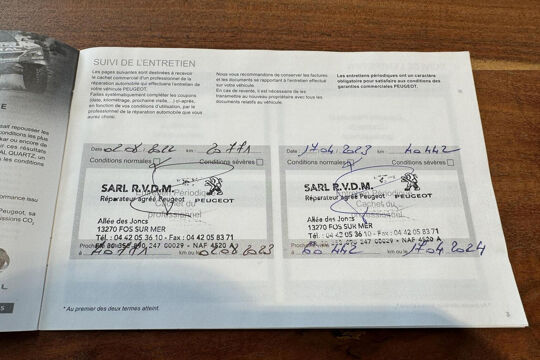 SUIVI DE L'ENTRETIEN
Les pages suivantes sont destinées à recevoir
le cachet commercial d'un professionnel de la
réparation automobile qui effectuera l'entretien de
votre véhicule PEUGEOT.
Faites systématiquement compléter les coupons
(date, kilométrage, prochaine visite...) ci-après,
en fonction de vos conditions d'utilisation, par le
professionnel de la réparation automobile que vous
aurez choisi.
Nous vous recommandons de conserver les factures
et les documents se rapportant à l'entretien effectué
sur votre véhicule.
En cas de revente, il est nécessaire de les
transmettre au nouveau propriétaire avec tous les
documents relatifs au véhicule.
Les entretiens périodiques ont un caractère
obligatoire pour satisfaire aux conditions des
garanties commerciales PEUGEOT.
Date 02.08.2022 km 20771
Conditions normales Conditions sévères
SARL R.V.D.M.
Réparateur agréé Peugeot PEUGEOT
professionnel
Allée des Joncs
13270 FOS SUR MER
Tél. : 04 42 05 36 10 - Fax : 04 42 05 83 71
247 00029 - NAF 4520 A
à 40771 km ou le 02.08.2023
Date 17.04.2023 km 40442
Conditions normales Conditions sévères
SARL R.V.D.M.
Entretien Périodique
Réparateur agréé Peugeot PEUGEOT
Cachet du
professionnel
Allée des Joncs
13270 FOS SUR MER
Tél. : 04 42 05 36 10 - Fax : 04 42 05 83 71
247 00029 - NAF 4520 A
à 60442 km ou le 17.04.2024
* Au premier des deux termes atteint.
3